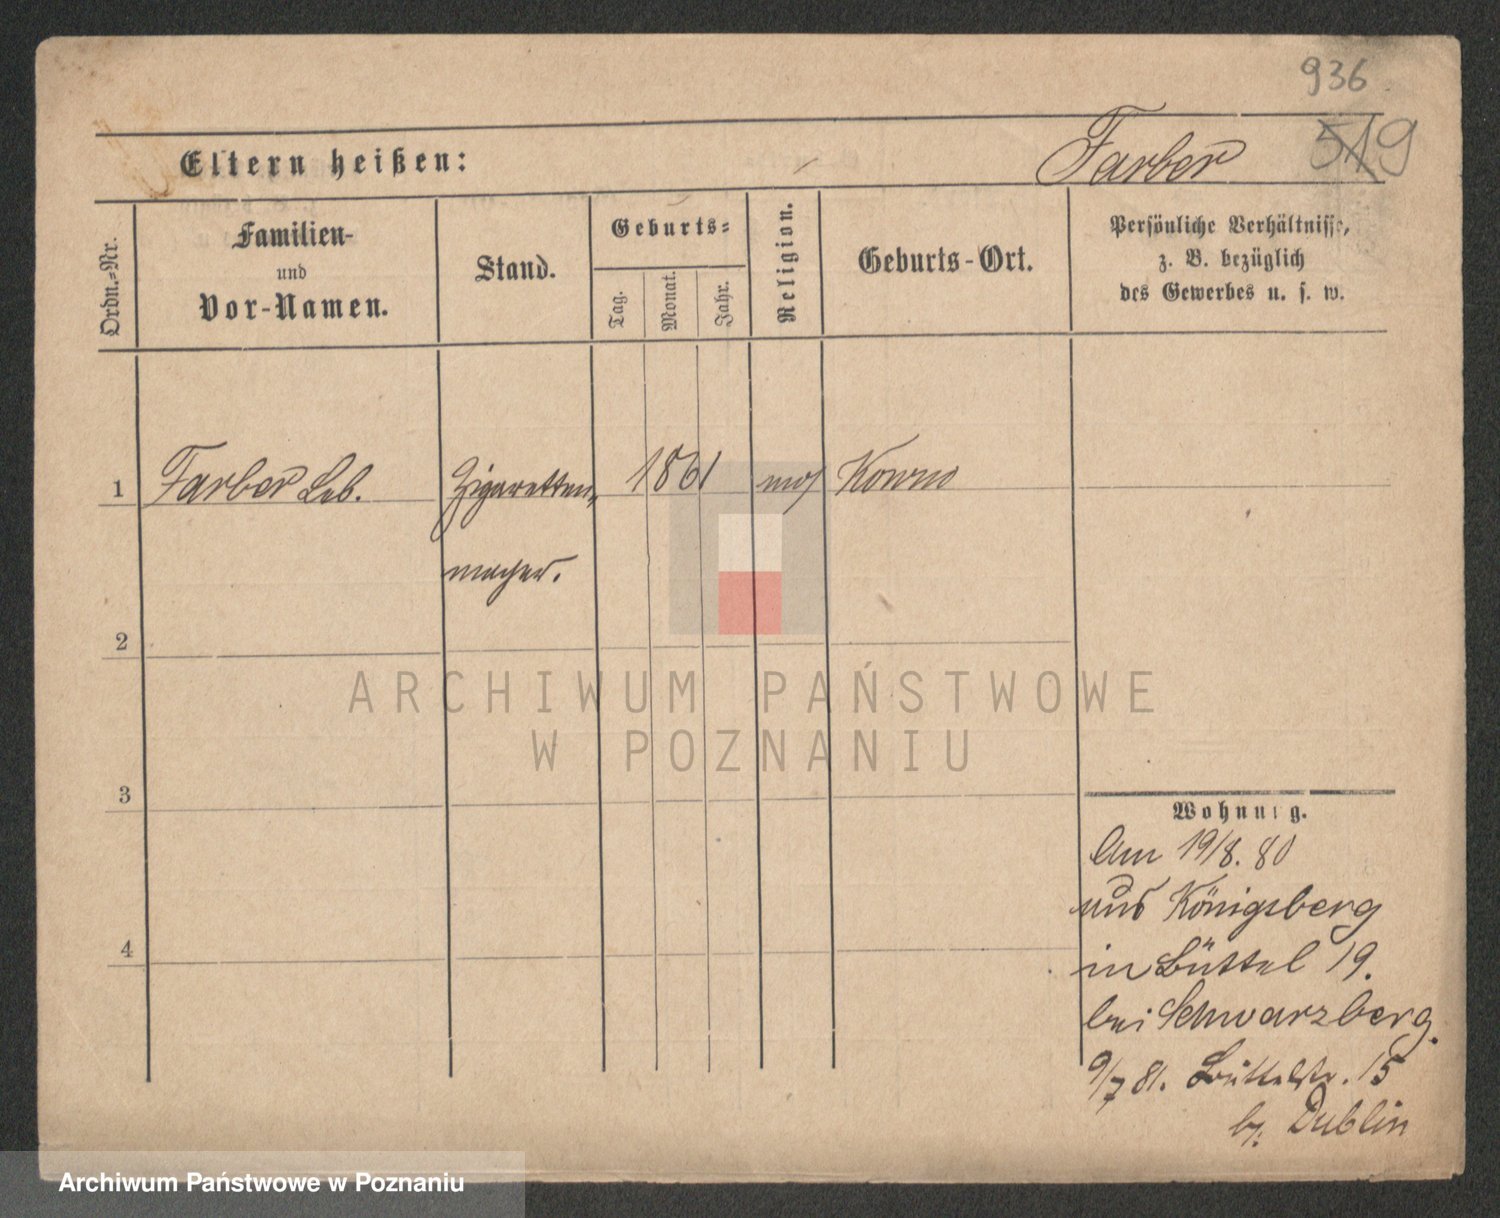 936
Eltern heißen:
Farber
519
Ordn.-Nr.
Familien-
und
Vor-Namen.
Stand.
Geburts-
Tag.
Monat.
Jahr.
Religion.
Geburts-Ort.
Persönliche Verhältnisse,
z. B. bezüglich
des Gewerbes u. s. w.
1
Farber Leb.
Zigaretten-
1861
mos
Kowno
macher.
2
3
4
Wohnung.
Am 19/8. 80
aus Königsberg
in Büttel 19.
bei Schwarzberg.
9/7 81. Büttelstr. 15
b. Dublin
ARCHIWUM PAŃSTWOWE
W POZNANIU
Archiwum Państwowe w Poznaniu